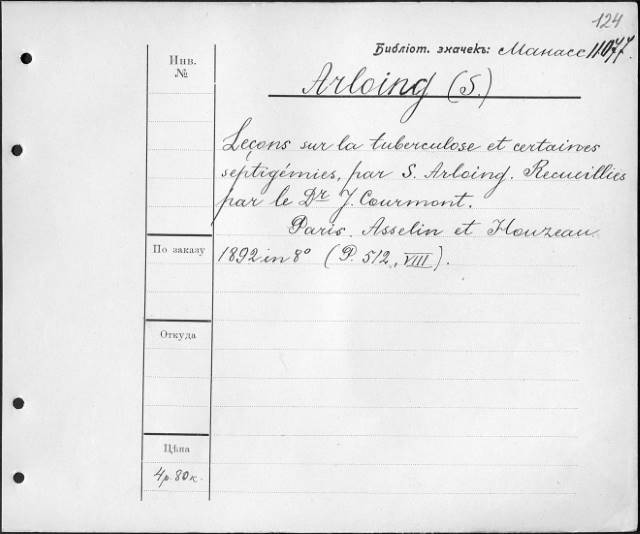 124
Библiот. значекъ: Манасс 11077.
Arloing (S.)
Инв.
№
Leçons sur la tuberculose et certaines
septigémies, par S. Arloing. Recueillies
par le Dr J. Courmont.
Paris. Asselin et Houzeau.
1892 in 8° (P. 512, VIII).
По заказу
Откуда
Цѣна
4 р. 80 к.